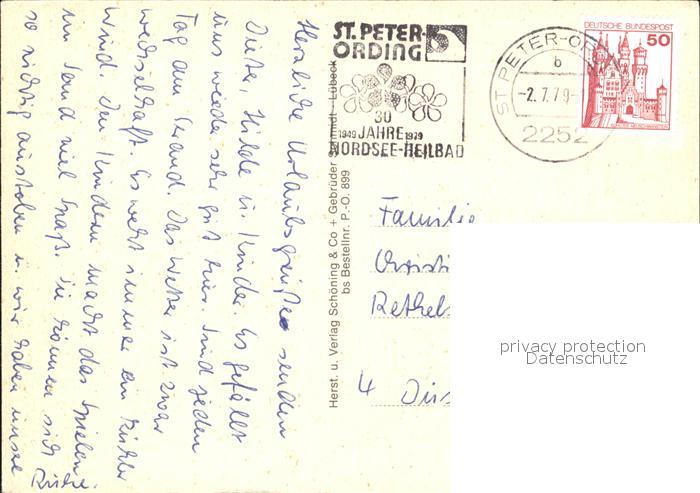 ST. PETER-
ORDING
30
1949 JAHRE 1979
NORDSEE-HEILBAD
ST. PETER-OR
b
-2.7.79-
2252
DEUTSCHE BUNDESPOST
50
Herzliche Urlaubsgrüße senden
Dieter, Hilde u. Kinder. Es gefällt
uns wieder sehr gut hier. Sind jeden
Tag am Strand. Das Wetter ist zwar
wechselhaft. Es weht immer ein kühler
Wind. Den Kindern macht das Spielen
im Sand viel Spaß. Sie können sich
so richtig austoben u. wir haben unsere
Ruhe.
Herst. u. Verlag Schöning & Co + Gebrüder Schmidt - Lübeck
bs Bestellnr. P.-O. 899
Familie
Christi
Rethels
4 Düs
privacy protection
Datenschutz